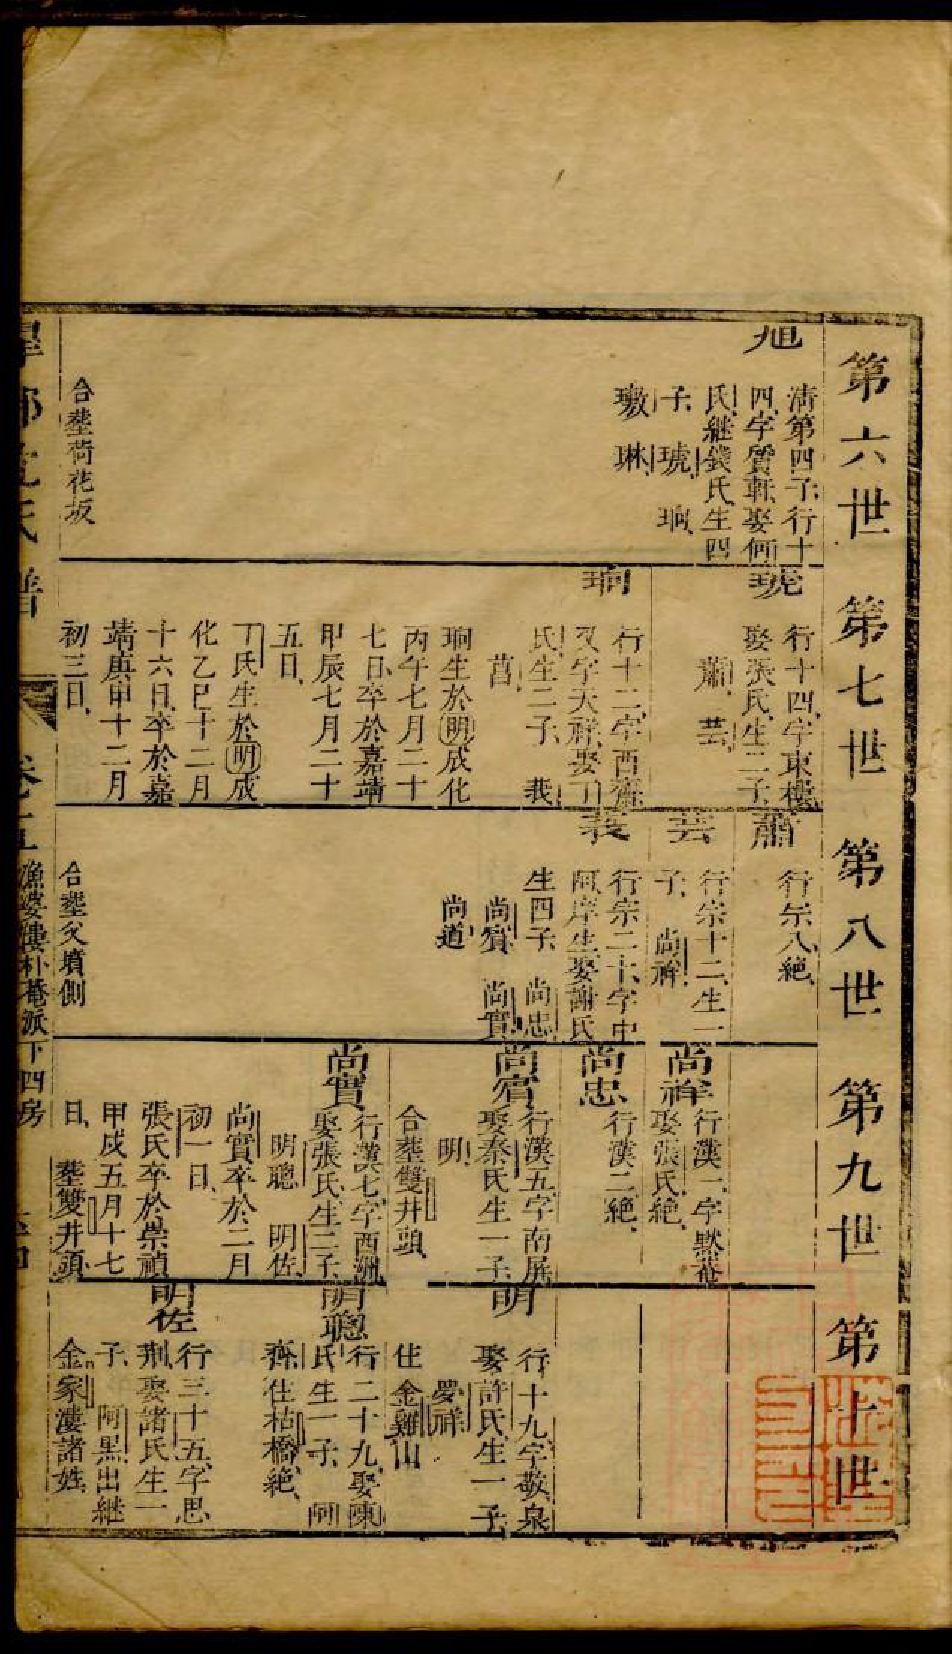 第六世 第七世 第八世 第九世 第十世
旭
清第四子行十
四字質軒娶何
氏繼錢氏生四
子 琥 珦
璈 琳
合塟荷花坂
琥
行十四字東樓
娶張氏生二子
蕭 芸
珦
行十二字西齋
又字天祥娶丁
氏生二子 莪
莒
珦生於明成化
丙午七月二十
七日卒於嘉靖
甲辰七月二十
五日
丁氏生於明成
化乙巳十二月
十六日卒於嘉
靖庚申十二月
初三日
蕭
行宗八絶
芸
行宗十二生一
子 尚祥
莪
行宗二十字中
阿岸生娶謝氏
生四子 尚忠
尚賓 尚實
尚道
合塟父墳側
尚祥
行漢一字默菴
娶張氏絶
尚忠
行漢二絶
尚賓
行漢五字南屏
娶秦氏生一子
明
合塟雙井頭
尚實
行漢七字西洲
娶張氏生二子
明聰 明佐
尚實卒於二月
初一日
張氏卒於崇禎
甲戌五月十七
日 塟雙井頭
明
行十九字敬泉
娶許氏生一子
夢祥
住金雞山
明聰
行二十九娶陳
氏生一子 阿
齊住枯橋絶
明佐
行三十五字思
荆娶諸氏生一
子 阿黑出継
金家漊諸姓
氏譜
卷十五
漁婆樓朴菴派下四房